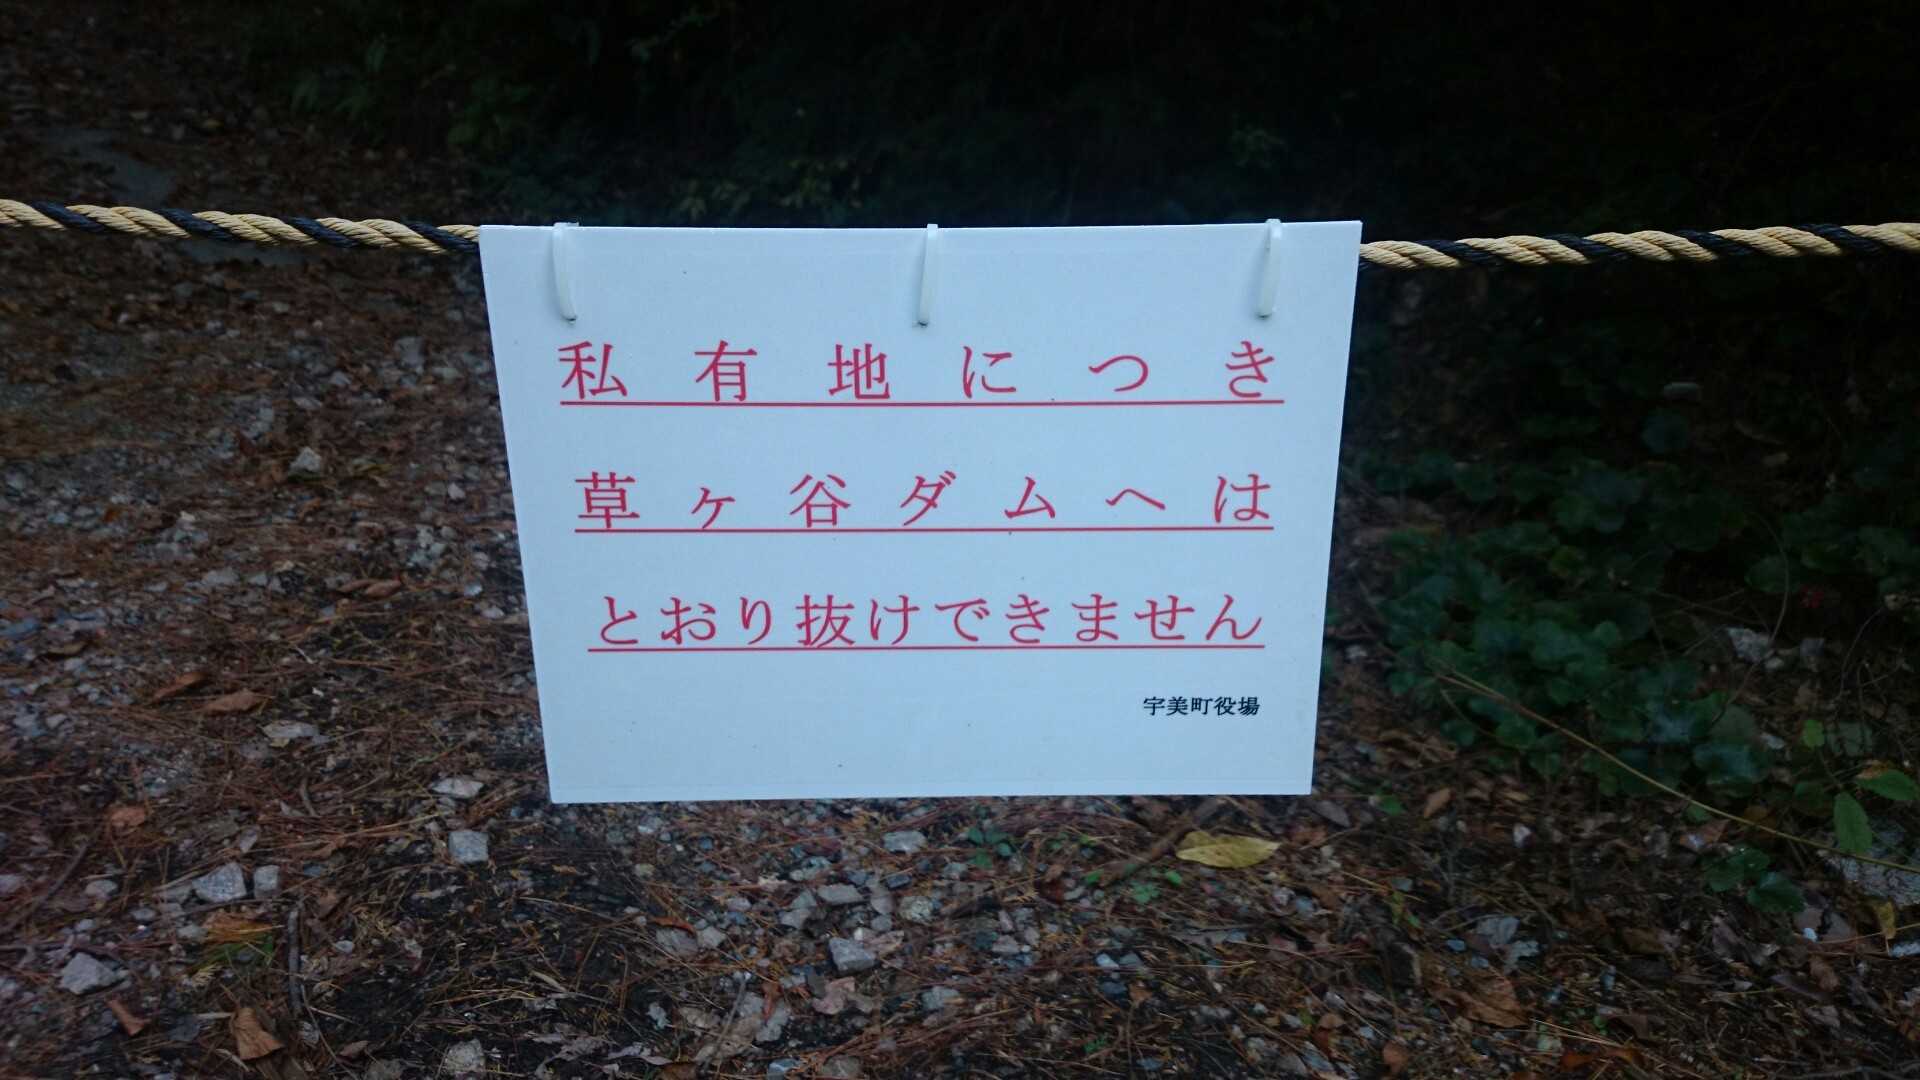 私有地につき
草ヶ谷ダムへは
とおり抜けできません
宇美町役場